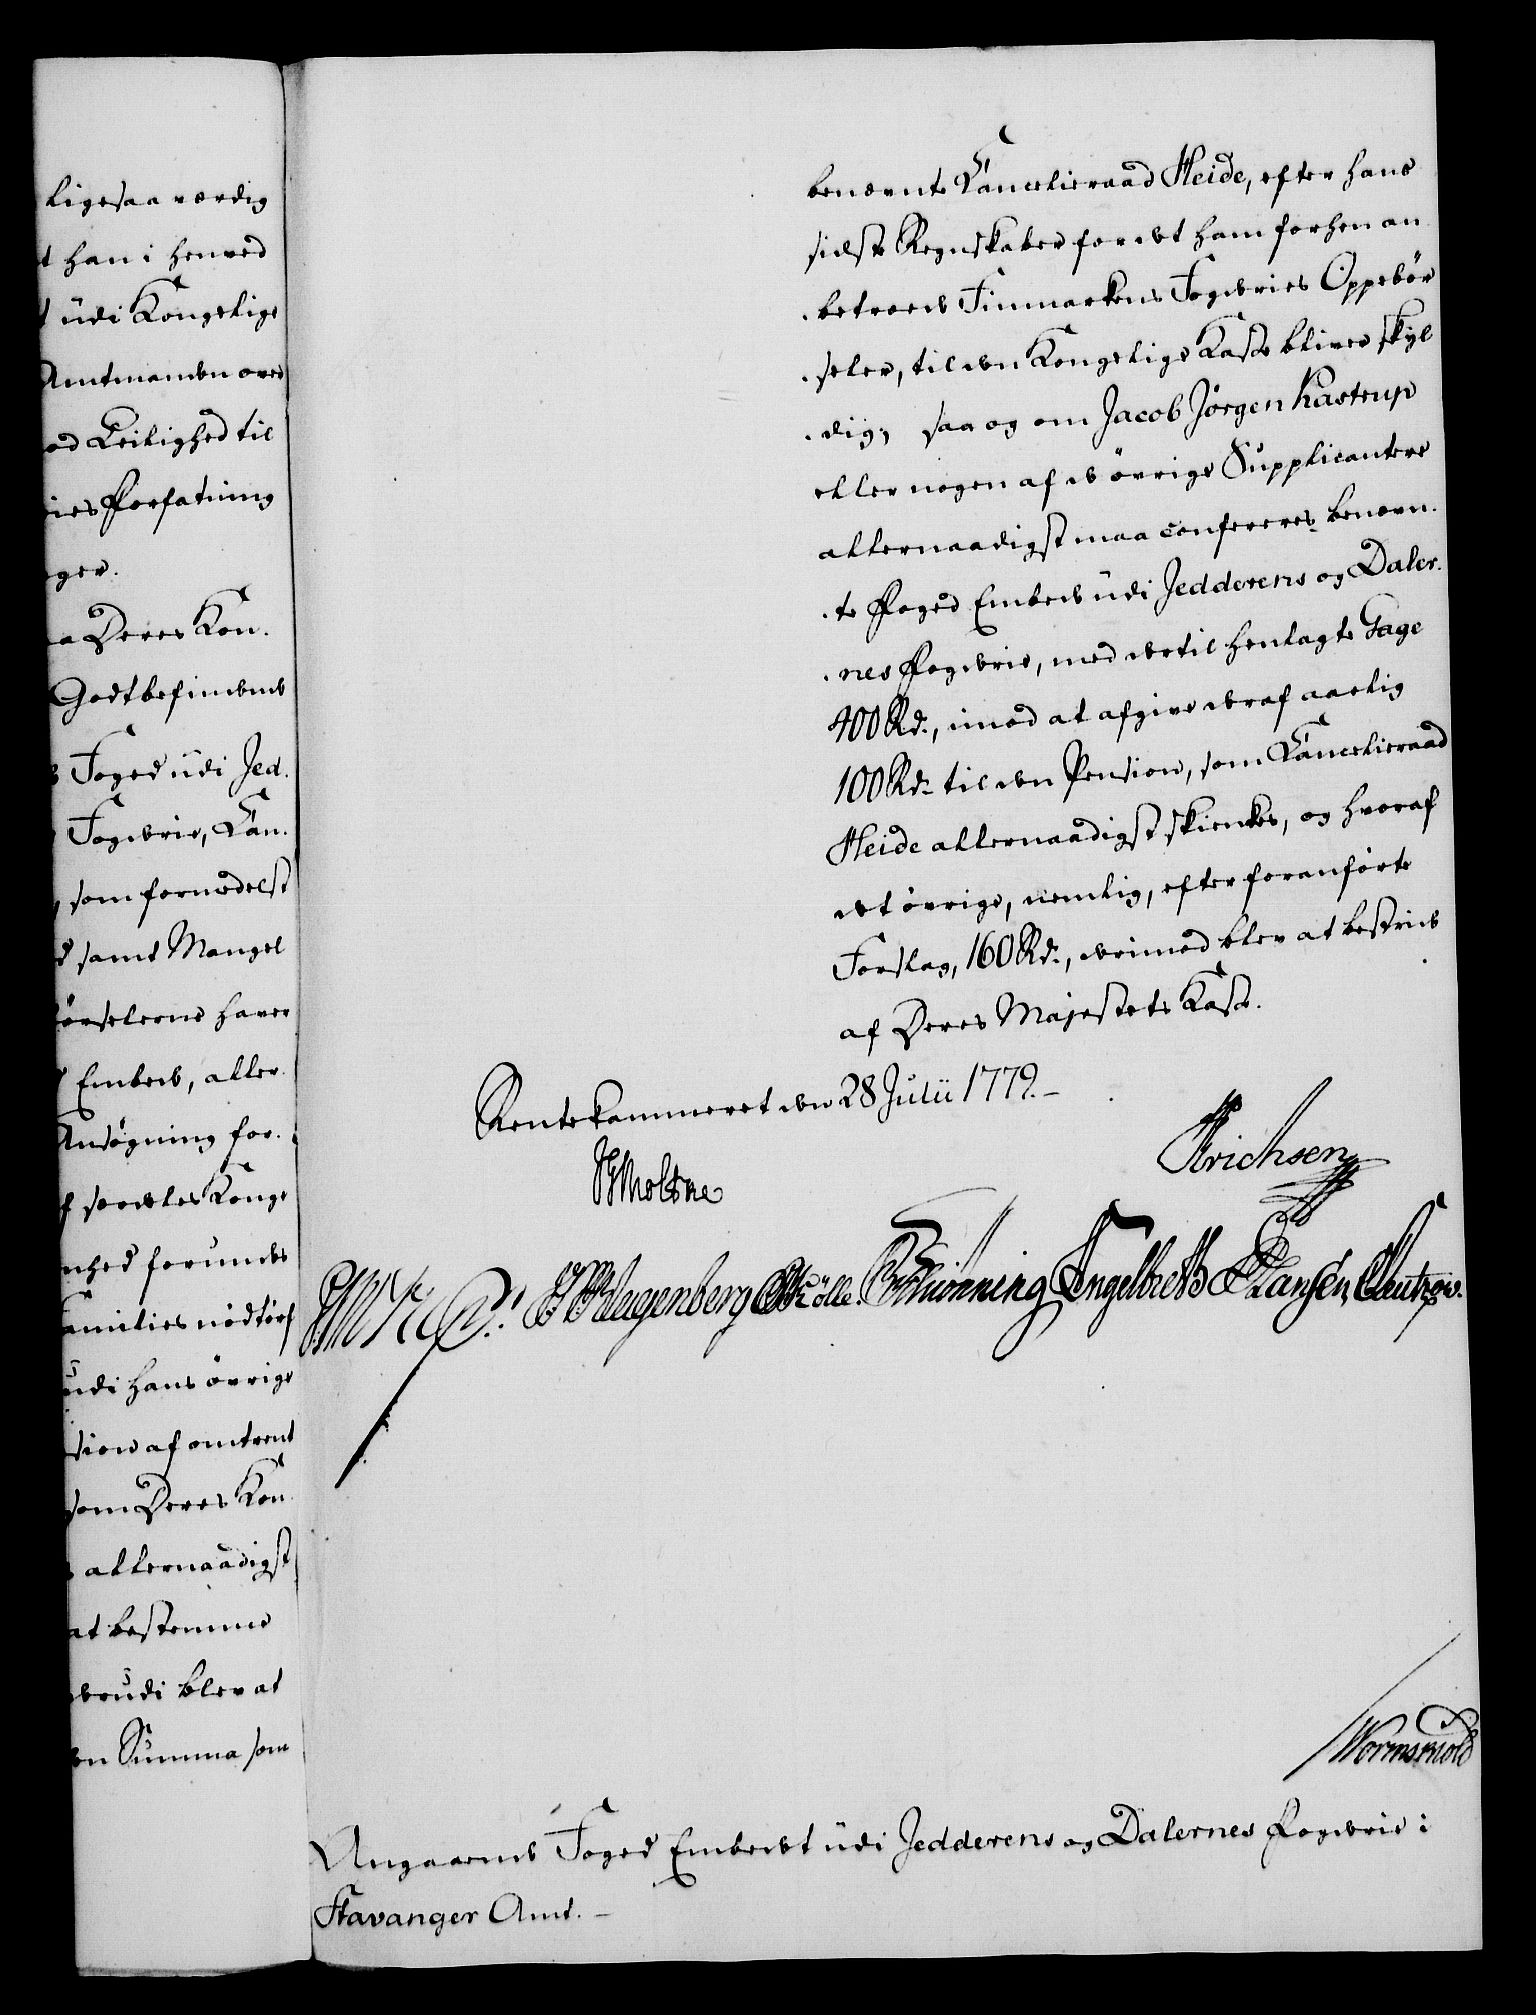 ligesaa værdig
han i henved
udi Kongelige
Amtmanden over
Leilighed til
Forfatning
Deres Kon.
Godtbefindende
Foged udi Jed.
Fogderie, Can.
som formedelst
samt Mangel
haver
Embede, aller.
Ansøgning for.
særdeles Konge
forundes
Families nødtørf
udi hans øvrige
af omtrent
som Deres Kon
allernaadigst
at bestemme
blev at
Summa som
benævnte Cancelieraad Heide, efter hans
sidste Regnskaber for det ham forhen an
betroede Finmarkens Fogderies Oppebør
seler, til den Kongelige Kasse bliver skyl
dig; saa og om Jacob Jörgen Kastrup
eller nogen af de øvrige Supplicantere
allernaadigst maa confereres benævn.
te Foged Embede udi Jedderens og Daler.
nes Fogderie, med dertil henlagte Gage
400 Rd., imod at afgive deraf aarlig
100 Rd. til den Pension, som Cancelieraad
Heide allernaadigst skienkes, og hvoraf
det øvrige, nemlig, efter foranførte
Forslag, 160 Rd., derimod blev at bestride
af Deres Majestets Kasse.
Rentekammeret den 28 Julii 1779. –
Moltke
Erichsen
Schiønning Engelbreth Hansen
Wormskiold
Angaaende Foged Embedet udi Jedderens og Dalernes Fogderie i
Stavanger Amt. –